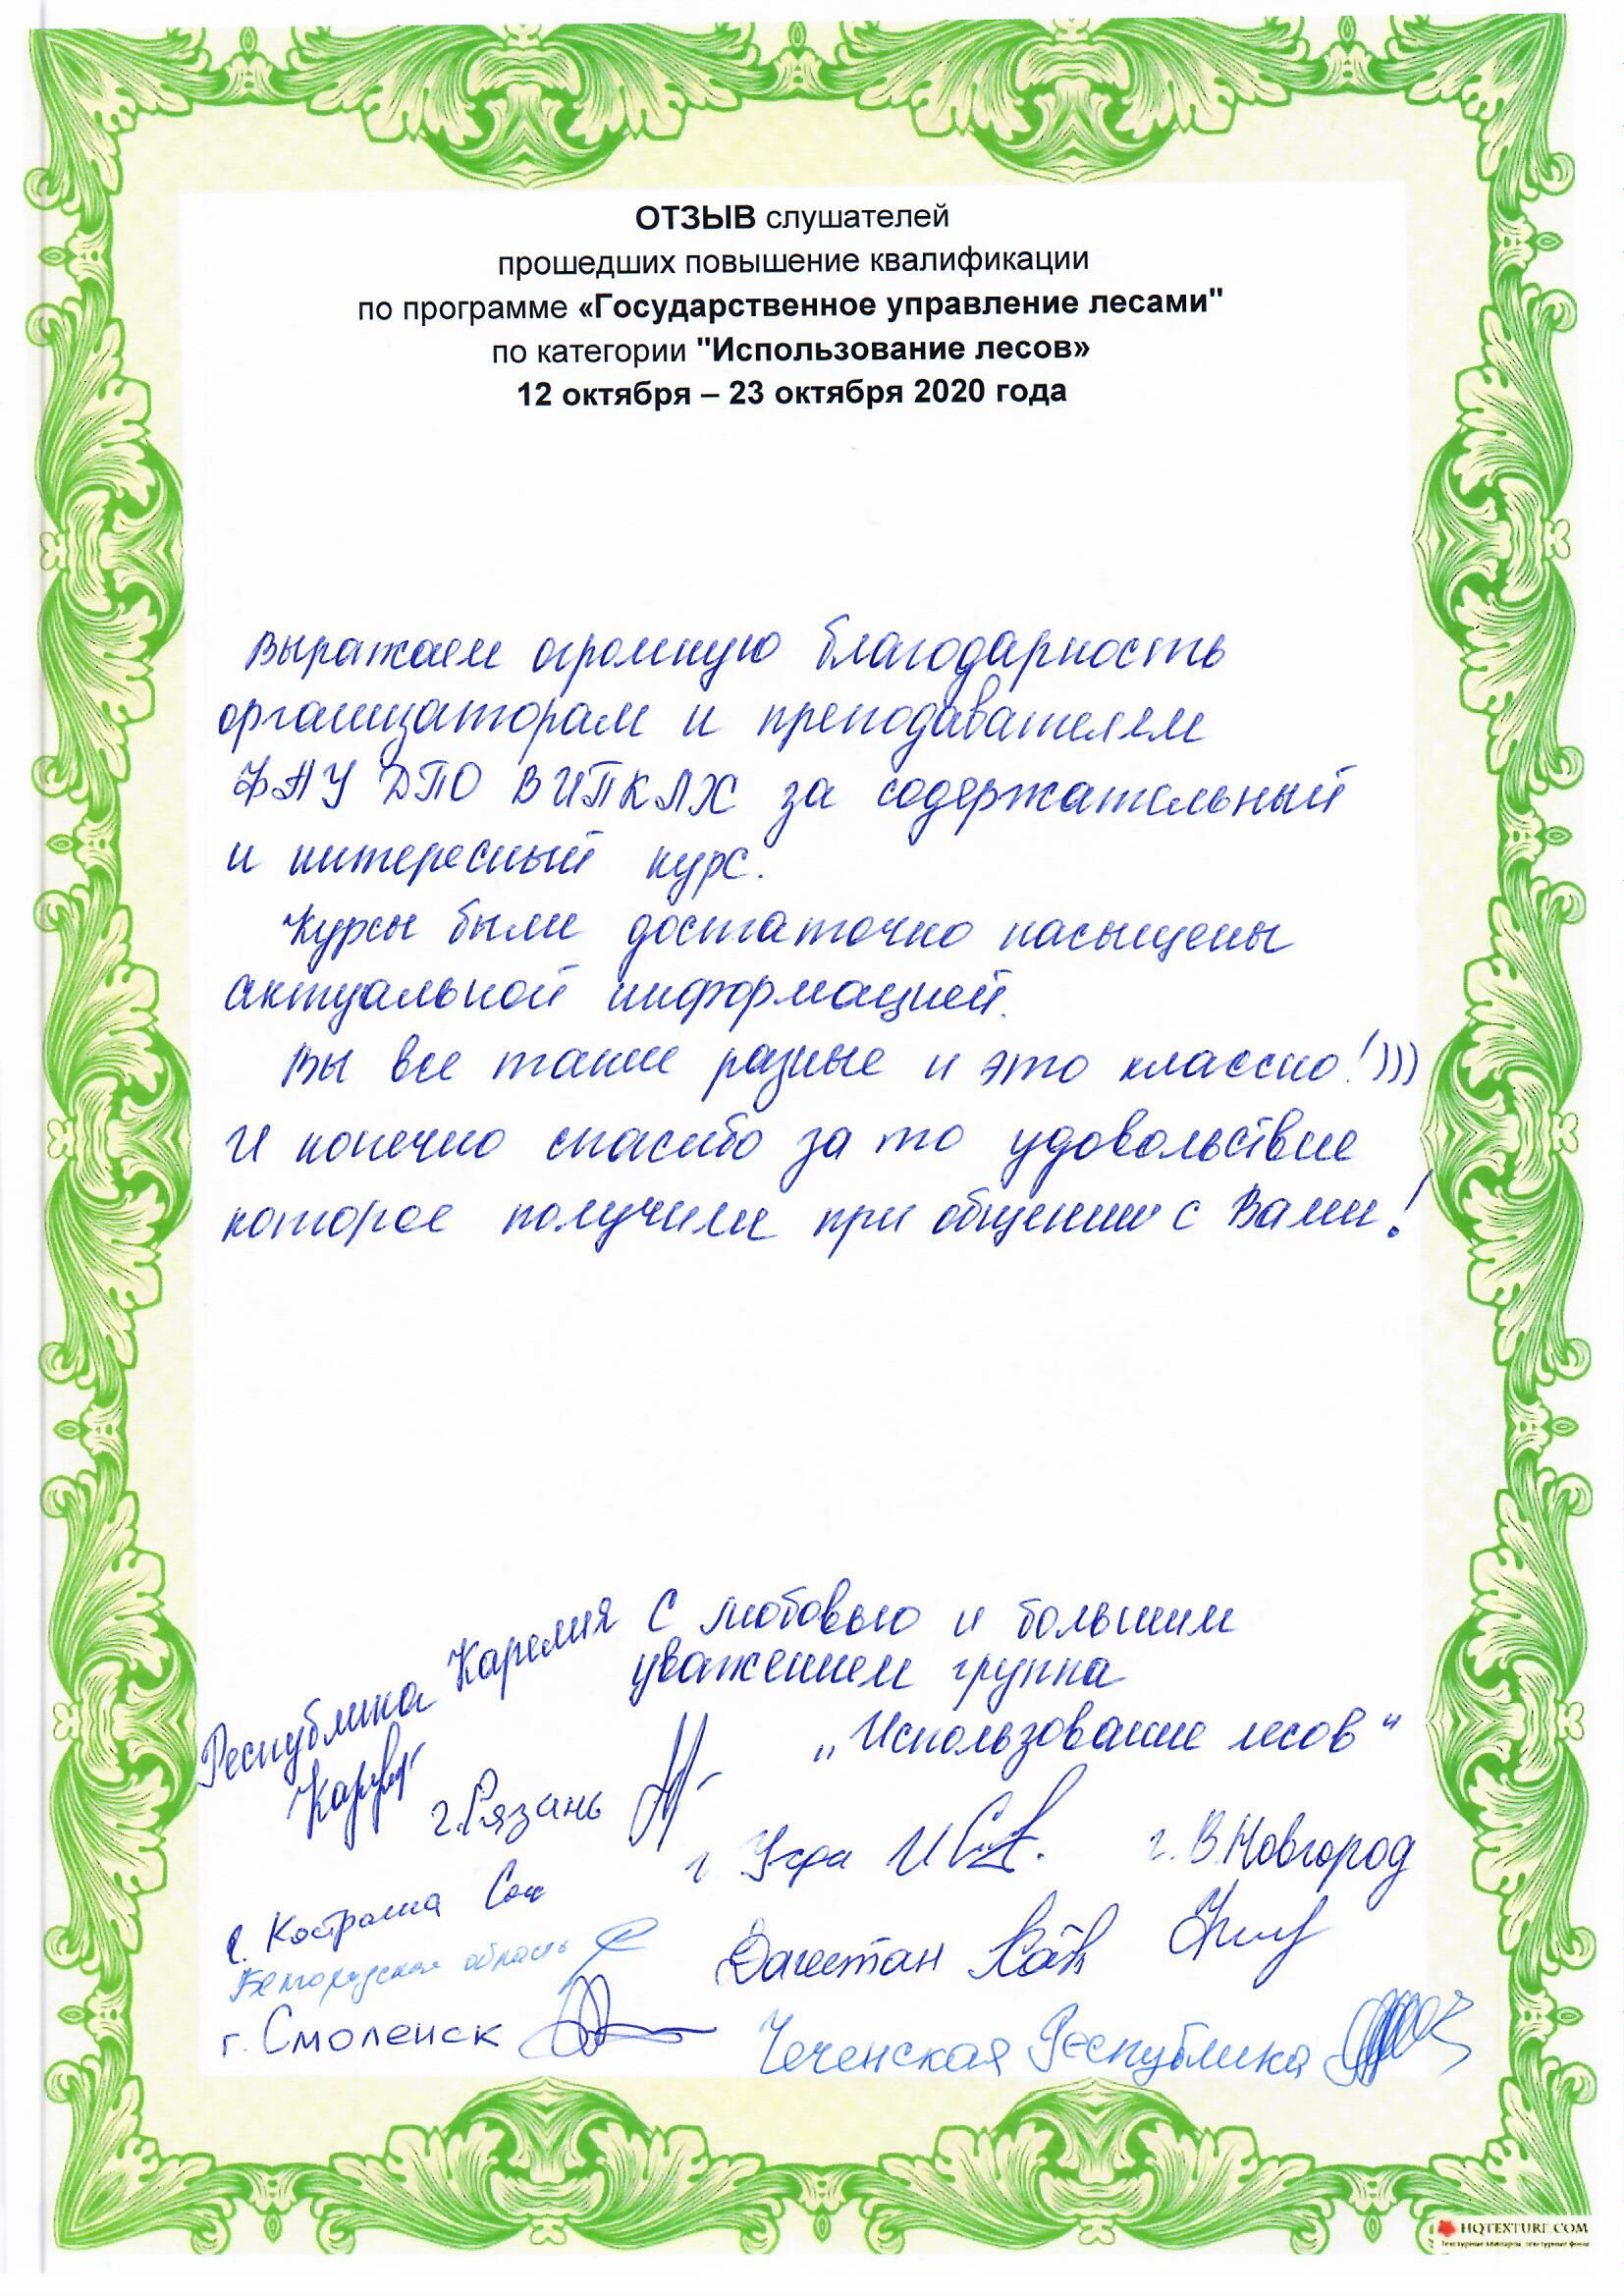 ОТЗЫВ слушателей
прошедших повышение квалификации
по программе «Государственное управление лесами"
по категории "Использование лесов»
12 октября – 23 октября 2020 года
Выражаем огромную благодарность
организаторам и преподавателям
ФАУ ДПО ВИПКЛХ за содержательный
и интересный курс.
Курсы были достаточно насыщены
актуальной информацией.
Вы все такие разные и это классно!)))
И конечно спасибо за то удовольствие
которое получили при общении с Вами!
С любовью и большим
уважением группа
„Использование лесов“
Республика Карелия
г. Рязань
г. Уфа
г. В. Новгород
г. Кострома
Белгородская область
Дагестан
г. Смоленск
Чеченская Республика
HQTEXTURE.COM